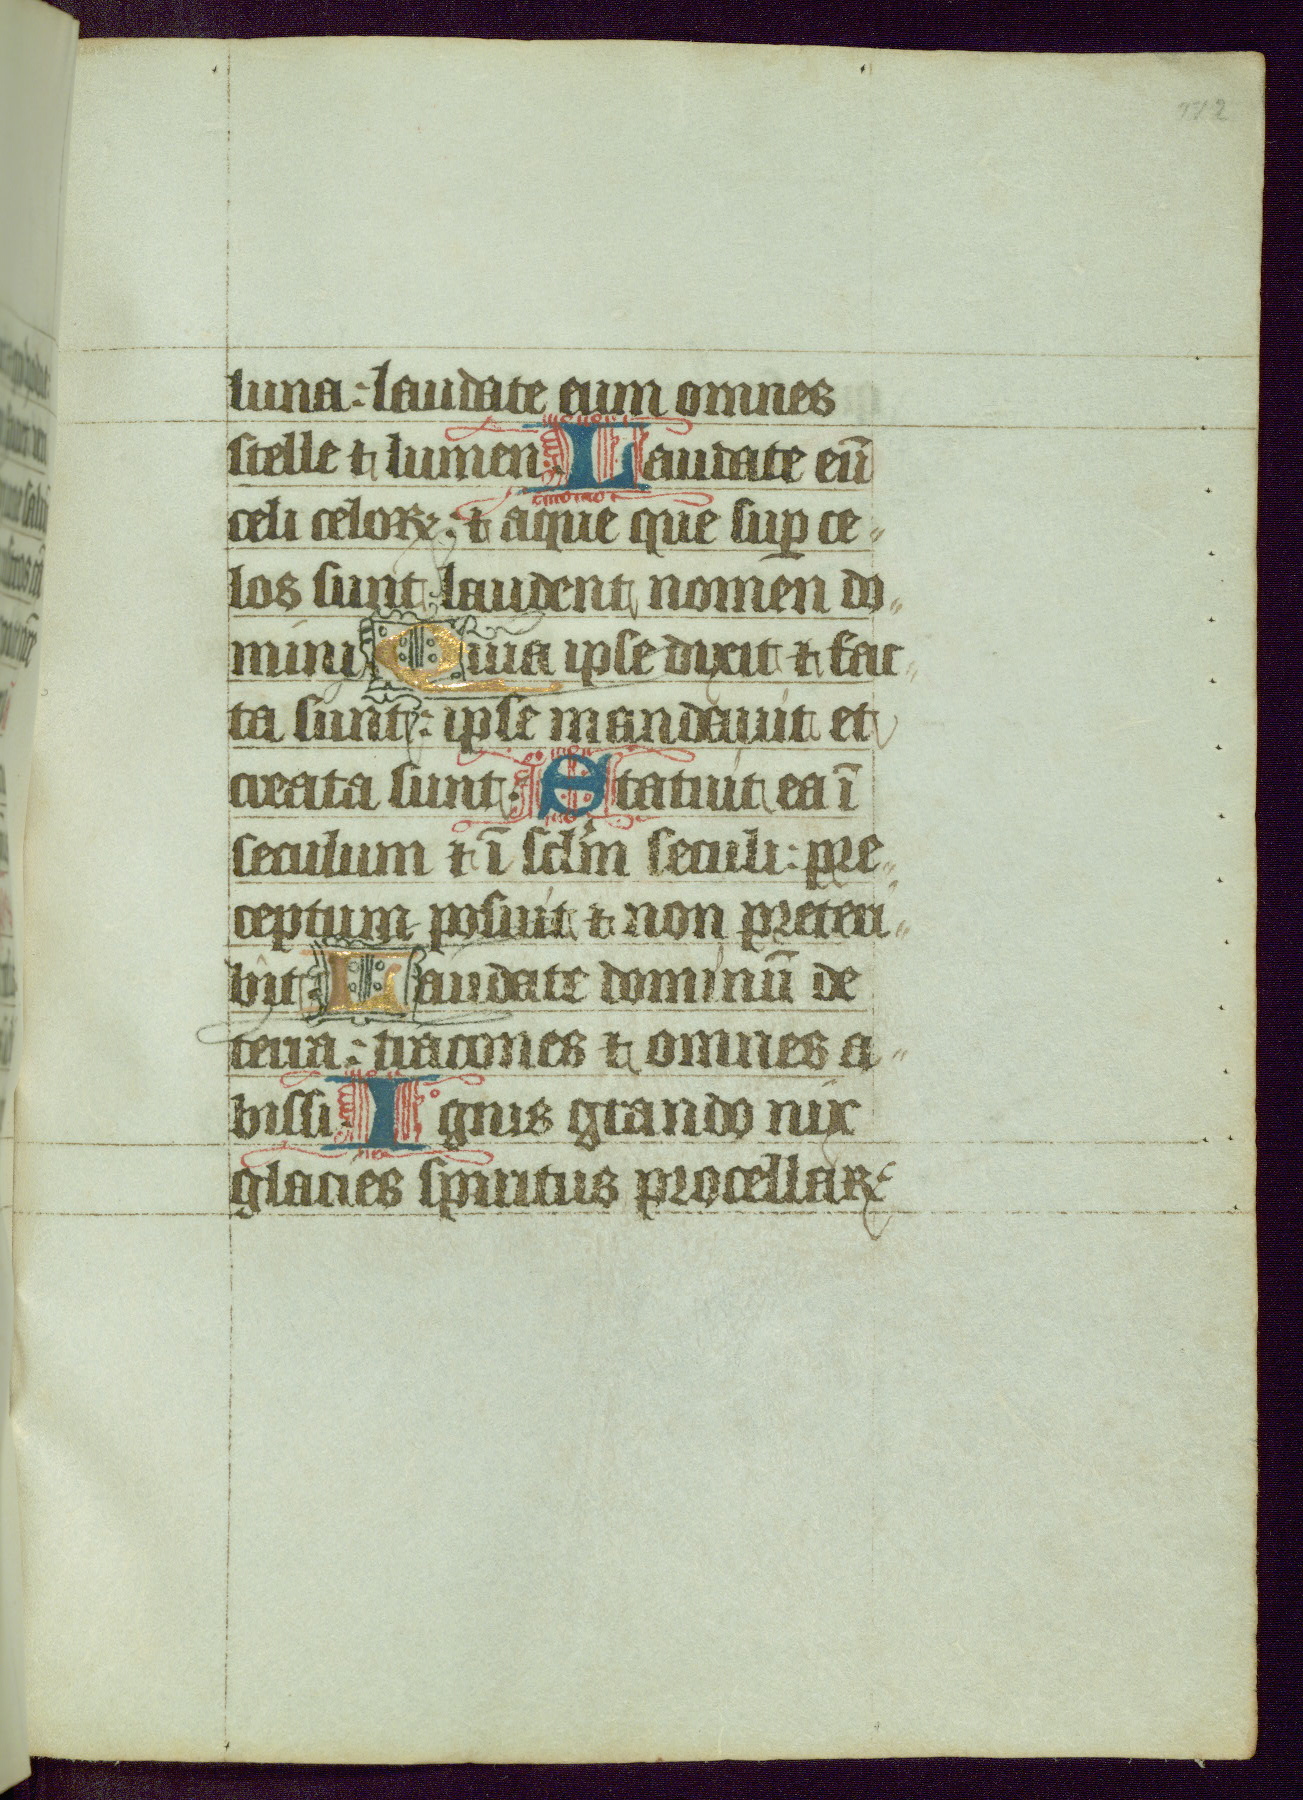 luna: laudate eum omnes
stelle ⁊ lumen. Laudate eū
celi celoꝝ: ⁊ aque que suꝑ ce-
los sunt laudent nomen do-
mini Quia ipse dixit ⁊ fac-
ta sunt: ipse mandauit et
creata sunt. Statuit ea ī
seculum ⁊ ī sclm̄ seculi: pre-
ceptum posuit ⁊ non preteri-
bit. Laudate dominū de
terra: dracones ⁊ omnes a-
bissi. Ignis grando nix
glacies spiritus procellaꝝ